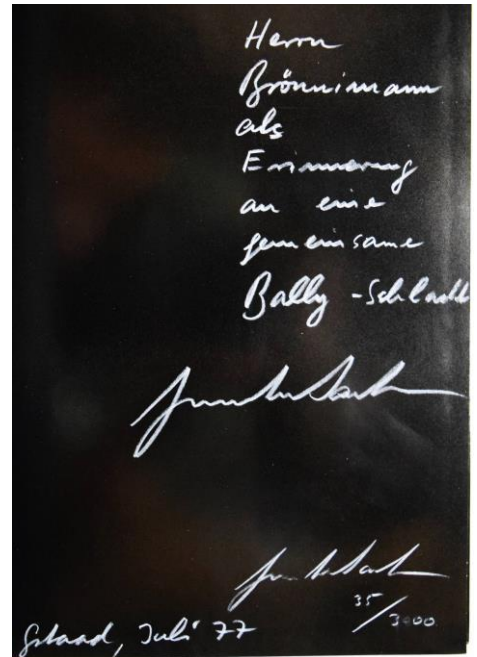 Herrn
Brönnimann
als
Erinnerung
an eine
gemeinsame
Bally -Schlacht
35/3000
Gstaad, Juli 77